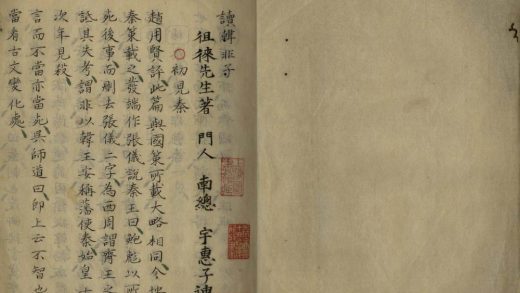 讀韓非子
徂徠先生著 門人 南總 宇惠子
初見秦
趙用賢評此篇與國策所載大略相同今
秦策載之發端作張儀說秦王曰鮑彪以所
死後事而刪去張儀二字為西周謂齊王之
詆其失考謂非以韓王安稱藩使秦始皇十
次年見殺
言而不當亦當死吳師道曰即上云不智也
當有古文變化處